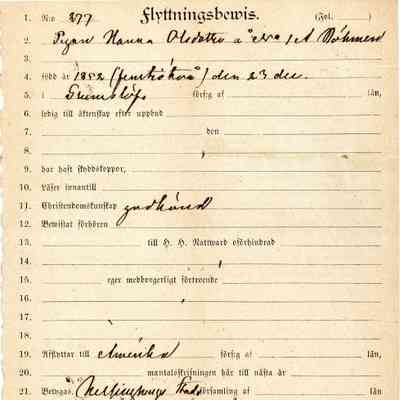 1. N:o 277 Flyttningsbewis. (Fol. )
2. Pigan Hanna Olsdotter å 1/4 Böhmen
3.
4. född år 1852 (femtiotvå) den 23 dec.
5. i Grumslöfs förs:g af län,
6. ledig till äktenskap efter uppbud
7. den
8. ,
9. har haft skyddskoppor,
10. Läser innantill
11. Christendomskunskap godkänd
12. Bewistat förhören
13. till H. H. Nattward oförhindrad
14. ,
15. eger medborgerligt förtroende
16. ,
17. ,
18.
19. Afflyttar till Amerika förs:g af län
20. mantalsskrifningen här till nästa år
21. Betygas, Helsingborgs Stads församling af